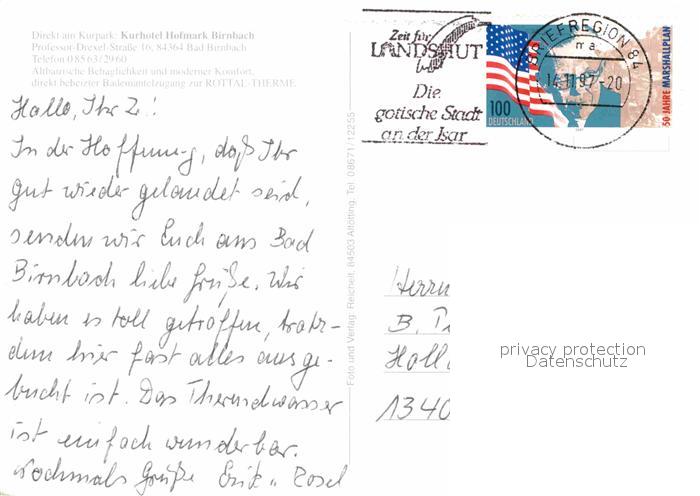 Direkt am Kurpark: Kurhotel Hofmark Birnbach
Professor-Drexel-Straße 16, 84364 Bad Birnbach
Telefon 0 85 63/29 60
Altbairische Behaglichkeit und moderner Komfort,
direkt beheizter Bademantelzugang zur ROTTAL-THERME
Hallo, Ihr 2!
In der Hoffnung, daß Ihr
gut wieder gelandet seid,
senden wir Euch aus Bad
Birnbach liebe Grüße. Wir
haben es toll getroffen, trotz-
dem hier fast alles ausge-
bucht ist. Das Thermalwasser
ist einfach wunderbar.
Nochmals Grüße Erik u. Rosel
Foto und Verlag: Reichelt, 84503 Altötting, Tel. 08671/12255
Zeit für
LANDSHUT
Die
gotische Stadt
an der Isar
100
DEUTSCHLAND
50 JAHRE MARSHALLPLAN
1997
BRIEFREGION 84
ma
14.11.97-20
Herrn
B.
1340
privacy protection
Datenschutz